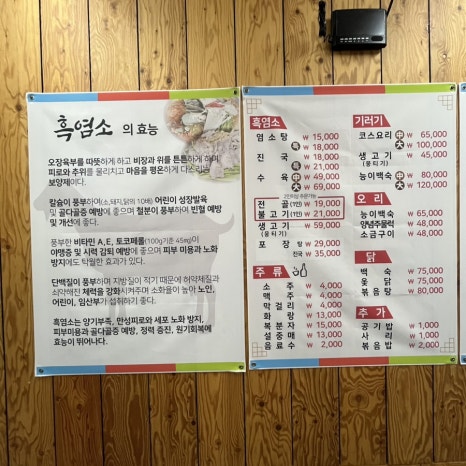 흑염소 의 효능
오장육부를 따뜻하게 하고 비장과 위를 튼튼하게 하여
피로와 추위를 물리치고 마음을 평온하게 다스리는
보양제이다.
칼슘이 풍부하며(소,돼지,닭의 10배) 어린이 성장발육
및 골다골증 예방에 좋으며 철분이 풍부하여 빈혈 예방
및 개선에 좋다.
풍부한 비타민 A,E, 토코페롤(100g기준 45㎎)이
야맹증 및 시력 감퇴 예방에 좋으며 피부 미용과 노화
방지에도 탁월한 효과가 있다.
단백질이 풍부하며 지방질이 적기 때문에 허약체질과
쇠약해진 체력을 강화시켜주며 소화율이 높아 노인,
어린이, 임산부가 섭취하기 좋다.
흑염소는 양기부족, 만성피로와 세포 노화 방지,
피부미용과 골다골증 예방, 정력 증진, 원기회복에
효능이 뛰어나다.
흑염소
염소탕 ₩ 15,000
특 ₩ 18,000
진국 ₩ 15,000
특 ₩ 18,000
수육 中 ₩ 49,000
大 ₩ 69,000
전골(1인) ₩ 19,000
불고기(1인) ₩ 21,000
생고기 ₩ 59,000
(뭉티기)
포장 탕 ₩ 29,000
진국 ₩ 35,000
주류
소주 ₩ 4,000
맥주 ₩ 4,000
막걸리 ₩ 4,000
화랑 ₩ 13,000
복분자 ₩ 15,000
설중매 ₩ 13,000
음료수 ₩ 2,000
기러기
코스요리 中 ₩ 65,000
大 ₩ 100,000
생고기 ₩ 45,000
(뭉티기)
능이백숙 ₩ 120,000
오리
능이백숙 ₩ 65,000
양념주물럭 ₩ 48,000
소금구이 ₩ 48,000
닭
백숙 ₩ 75,000
옻닭 ₩ 75,000
볶음탕 ₩ 80,000
추가
공기밥 ₩ 1,000
사리 ₩ 1,000
볶음밥 ₩ 2,000